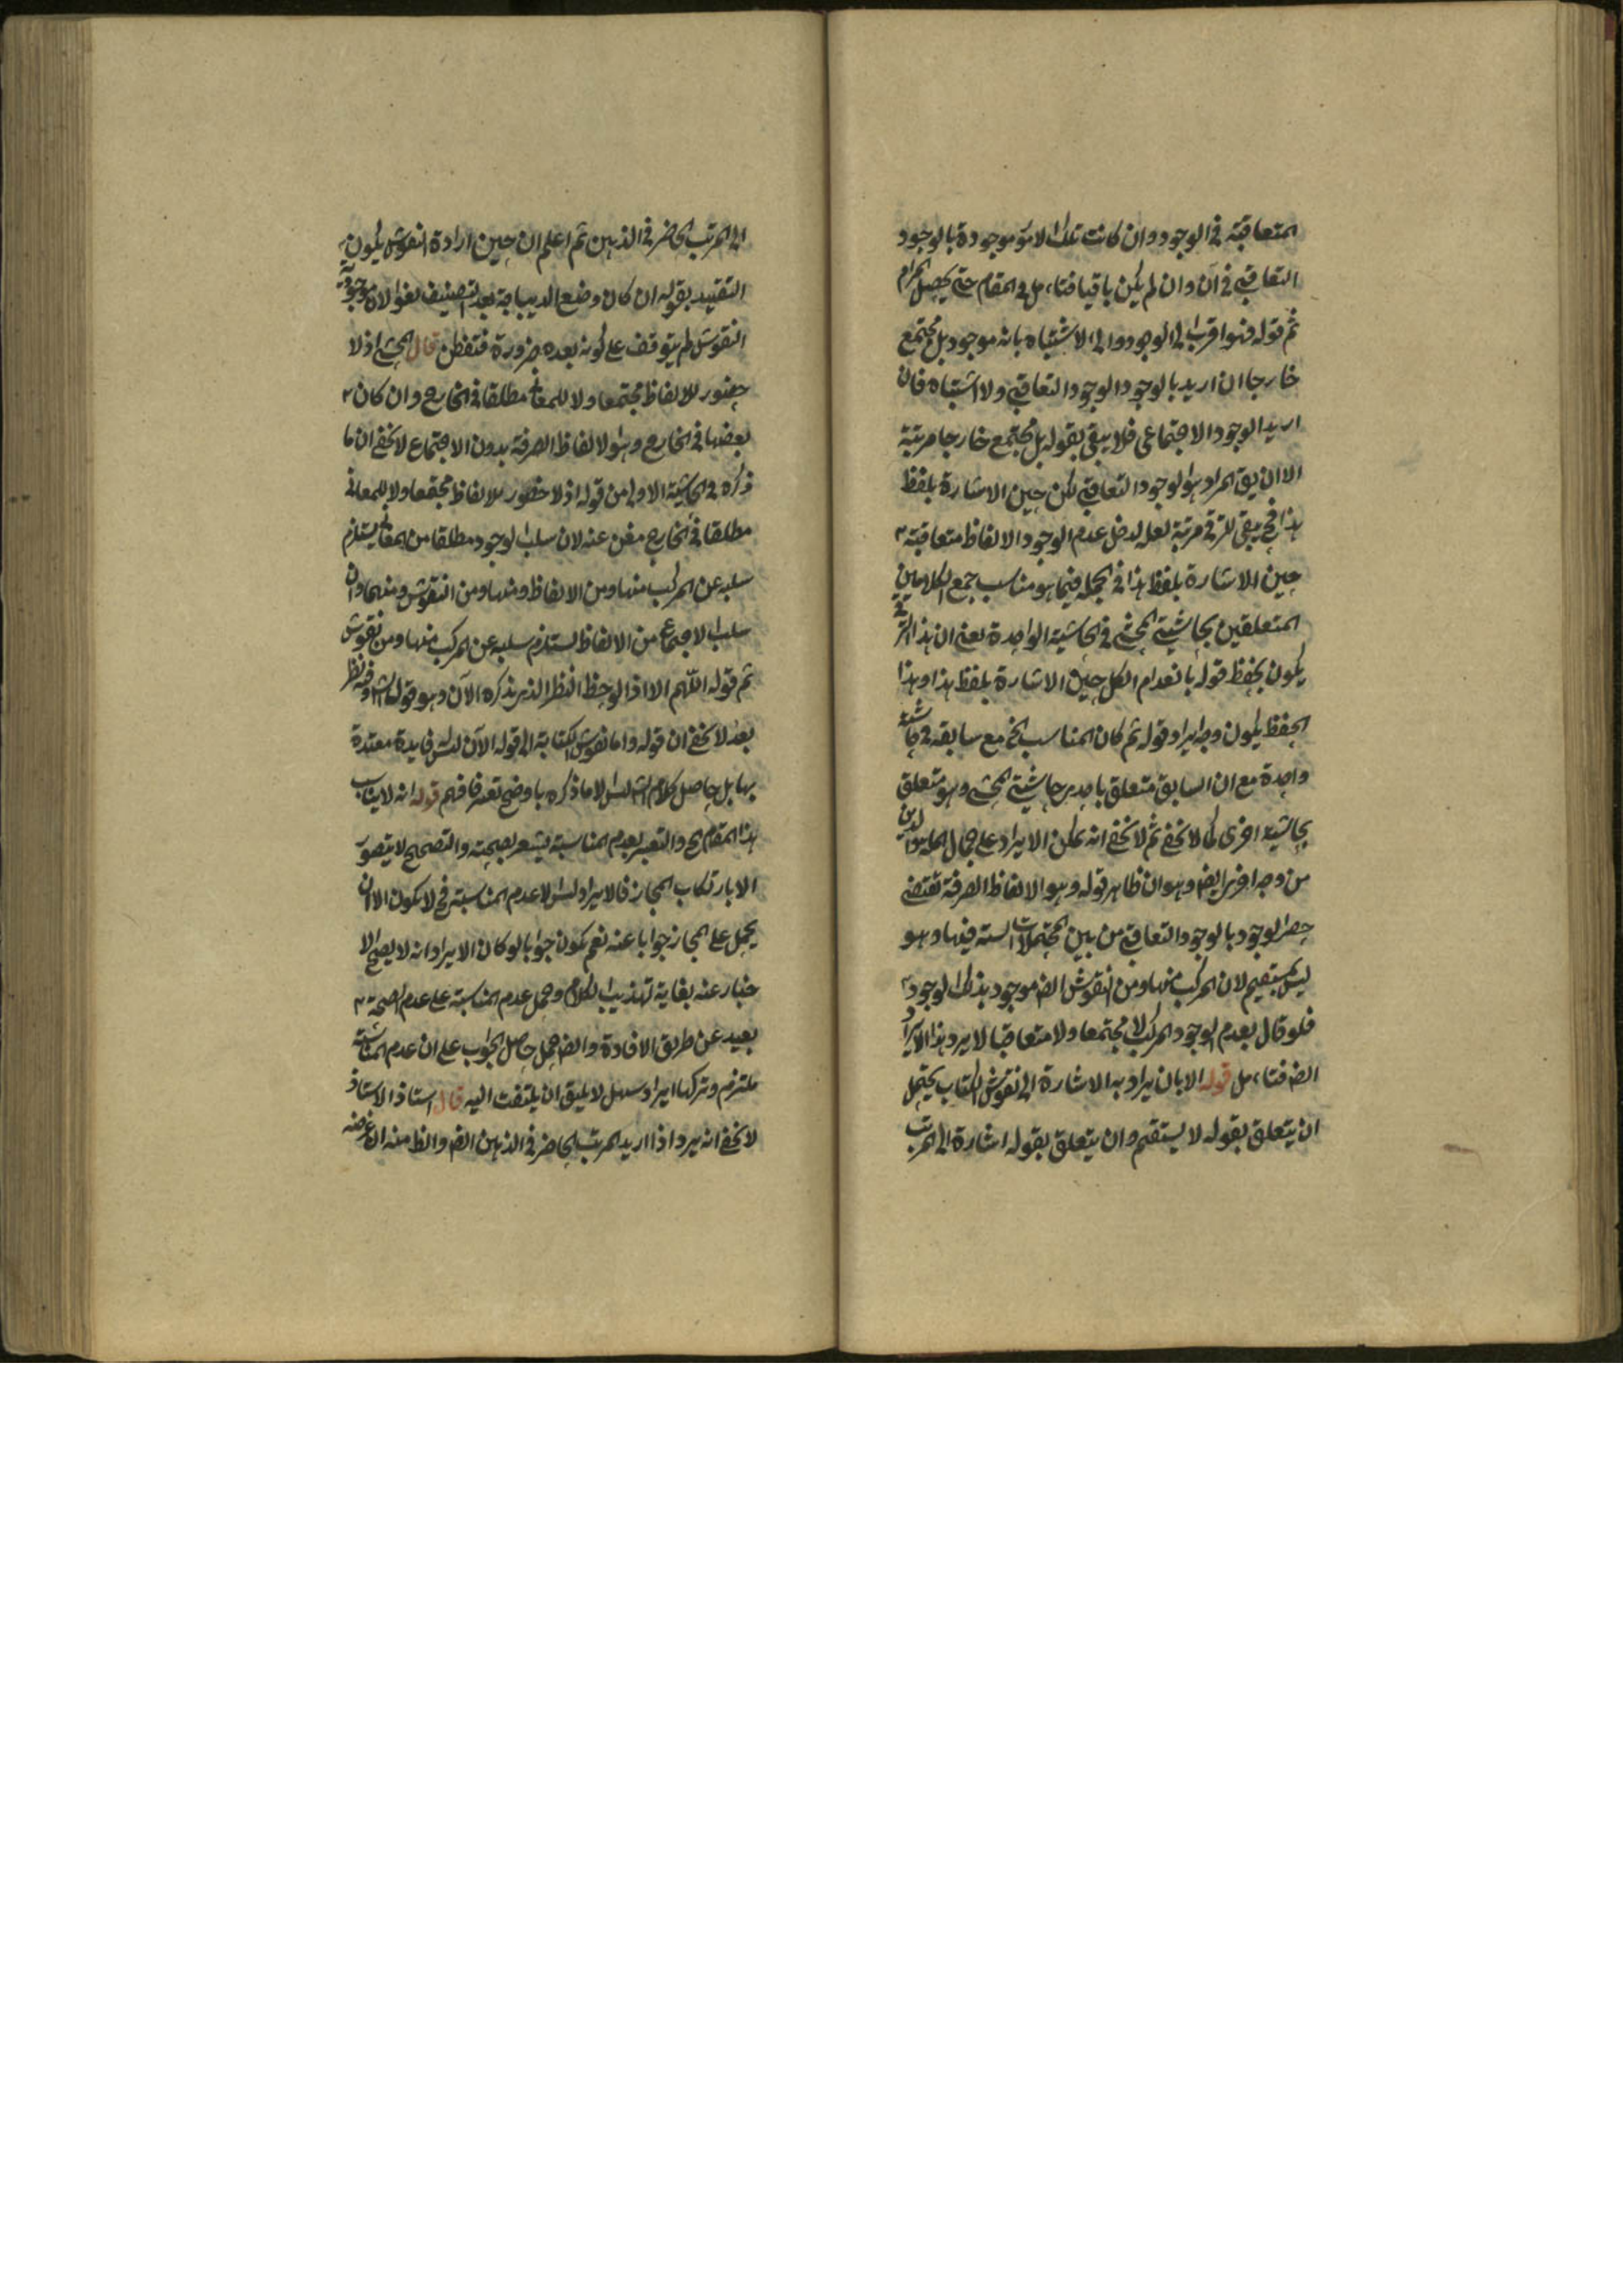 المتعاقبة فى الوجود وان كانت تلك الامور موجودة بالوجود
التعاقبى فى آن وان لم يكن باقيا فتامل فى المقام حتى يحصل المرام
ثم قوله فهو اقرب الى الوجود والى الاشتباه بانه موجود بل مجتمع
خارجا ان اريد بالوجود الوجود التعاقبى ولا اشتباه فان
اريد الوجود الاجتماعى فلا يبقى بقوله بل مجتمع خارجا مرتبة
الا ان يق المراد هو الوجود التعاقبى لكن حين الاشارة بلفظ
هذا فح يبقى للترقى مرتبة لعله لدخل عدم الوجود الالفاظ متعاقبة
حين الاشارة بلفظ هذا فى الجملة فيما هو مناسب جمع الكلامين
المتعلقين بحاشيتى المحشى فى الحاشية الواحدة يعنى ان هذا الترقى
يكون بحفظ قوله بانعدام الكل حين الاشارة بلفظ هذا وهذا
الحفظ يكون وجه ايراد قوله ثم كان المناسب الخ مع سابقه فى حاشية
واحدة مع ان السابق متعلق باحدى حاشيتى المحشى وهو متعلق
بحاشية اخرى كما لا يخفى ثم لا يخفى انه يمكن الايراد على جمال الملة والدين
من وجه اخر ايض وهو ان ظاهر قوله وهو الالفاظ الصرفة تقتضى
حصر الوجود بالوجود التعاقبى من بين المحتملات الستة فيها وهو
ليس بمستقيم لان المركب منها ومن النقوش ايض موجود بذلك الوجود
فلو قال بعدم الوجود المركب لا مجتمعا ولا متعاقبا لا يرد هذا الايراد
ايض فتامل قوله الا بان يراد به الاشارة الى نقوش الكتاب يحتمل
ان يتعلق بقوله لا يستقيم وان يتعلق بقوله اشارة الى المرتب
الى المرتب الحاضر فى الذهن ثم اعلم ان حين ارادة النقوش يكون
التقييد بقوله ان كان وضع الديباجة بعد التصنيف لغوا لان موجودية
النقوش لم يتوقف على كونه بعده ضرورة فتفطن قال المحشى اذ لا
حضور للالفاظ مجتمعا ولا للمعانى مطلقا فى الخارج وان كان
بعضها فى الخارج وهو الالفاظ الصرفة بدون الاجتماع لا يخفى ان ما
ذكره فى الحاشية الاولى من قوله اذ لا حضور للالفاظ مجتمعا ولا للمعانى
مطلقا فى الخارج مغن عنه لان سلب الوجود مطلقا من المعانى يستلزم
سلبه عن المركب منها ومن الالفاظ ومنها ومن النقوش ومنهما وان
سلب الاجتماع من الالفاظ يستلزم سلبه عن المركب منها ومن نقوش
ثم قوله اللهم الا اذا لوحظ النظر الذى يذكره الآن وهو قول الش وفيه نظر
بعد لا يخفى ان قوله واما نقوش الكتابة الى قوله الآن ليس فايدة معتدة
بها بل حاصل كلام الش ليس الا ما ذكره باوضح تعبير فافهم قوله انه لا يناسب
هذا المقام الخ والتعبير بعدم المناسبة يشعر بصحته والتصحيح لا يتصور
الا بارتكاب المجاز فالايراد ليس الا عدم المناسبة فح لا يكون الا ان
يحمل على المجاز جوابا عنه نعم يكون جوابا لو كان الايراد انه لا يصح الا
خبار عنه بغاية تهذيب الكلام وحمل عدم المناسبة على عدم الصحة
بعيد عن طريق الافادة وايض حمل حاصل الجواب على ان عدم المناسبة
ملتزم وتركها ايراد سهل لا يليق ان يلتفت اليه قال استاذ الاستاذ
لا يخفى انه يرد اذا اريد المرتب الحاضر فى الذهن ايض والظ منه ان غرضه